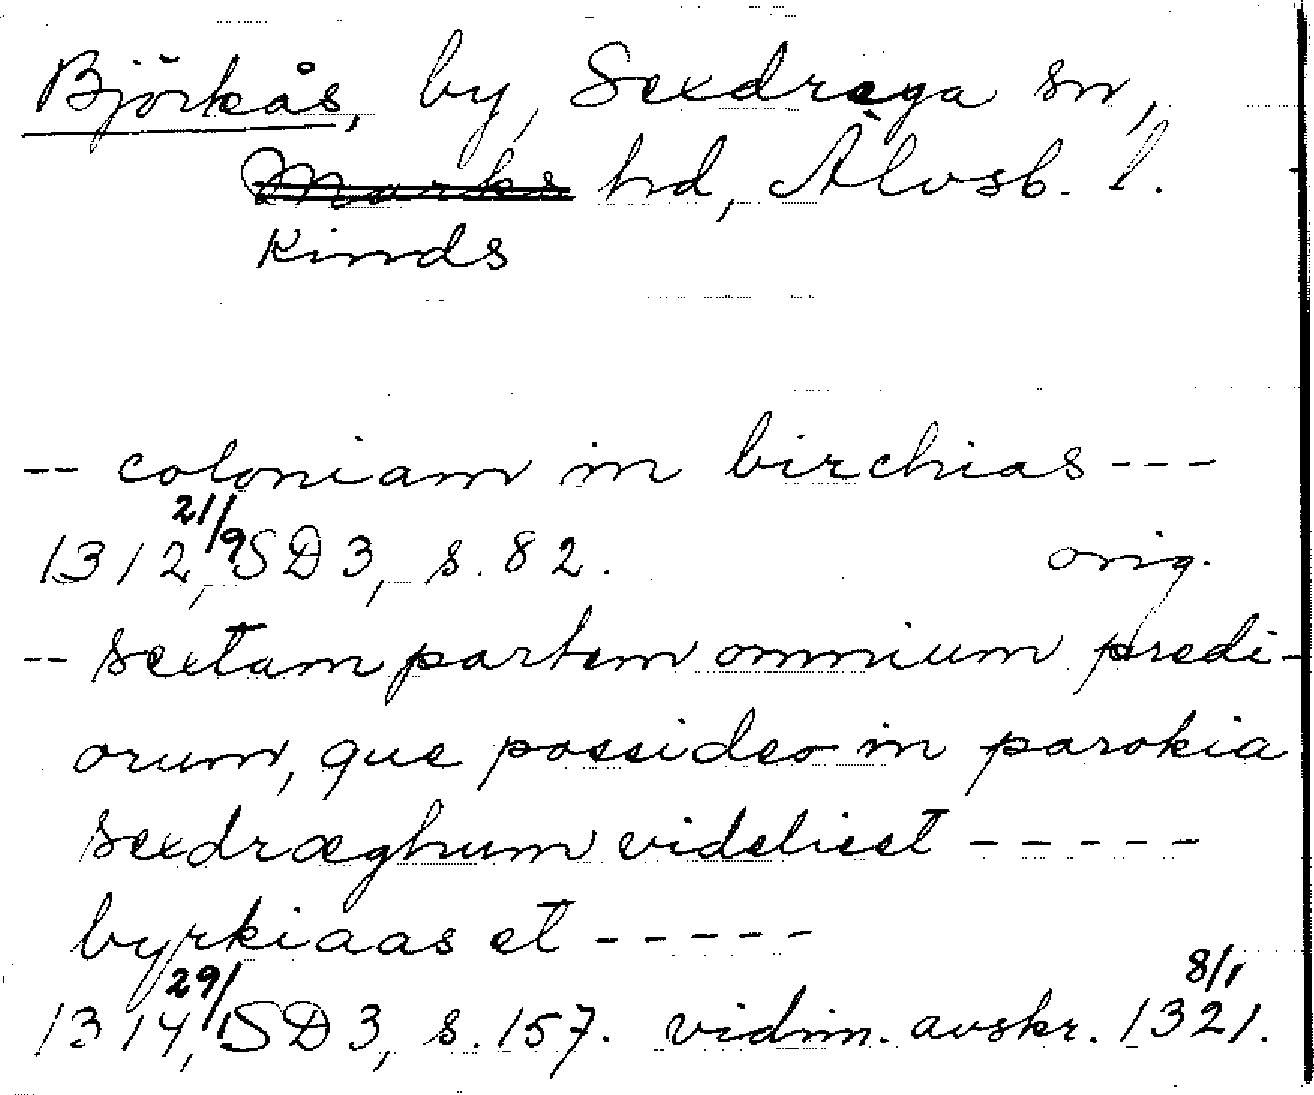 Björkås, by, Sexdrega sn,
Marks hd, Älvsb. l.
Kinds
-- coloniam in birchias ---
1312 21/9, SD 3, s. 82. orig.
-- sextam partem omnium predi-
orum, que possideo in parokia
sexdræghum videlicet -----
byrkiaas et -----
1314 29/1, SD 3, s. 157. vidim. avskr. 1321 8/1.